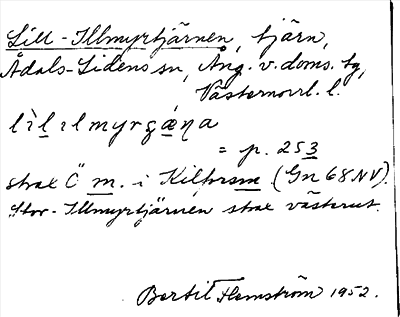 Lill-Illmyrtjärnen, tjärn,
Ådals-Lidens sn, Ång. v. doms. tg,
Västernorrl. l.
= p. 253
strax Ö m. i Kilforsm (Gn 68 NV).
Stor-Illmyrtjärnen strax västerut.
Bertil Flemström 1952.